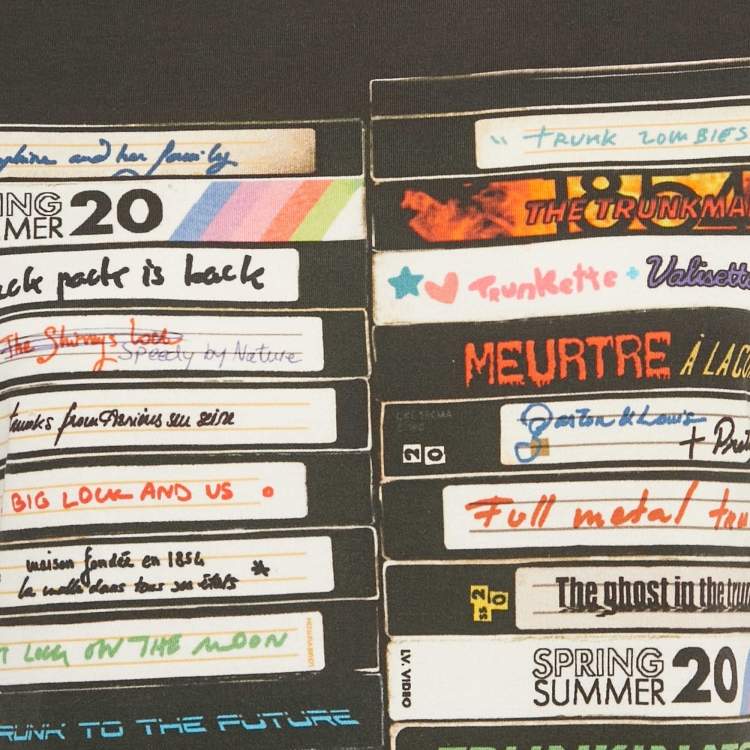 and her family
ING
MER 20
pack is back
The Shinnys Lock
Speedy by Nature
trunks from Asnières sur seine
BIG LOCK AND US
maison fondée en 1854
la malle dans tous ses états *
LOCK ON THE MOON
RUNK TO THE FUTURE
" TRUNK ZOMBIES
1854
THE TRUNKMA
TRUNKETTE + Valisette
MEURTRE À LA CO
20
Gaston & Louis
+
Full metal tru
SS 20
The ghost in the trun
LV. VIDEO
SPRING
SUMMER 20